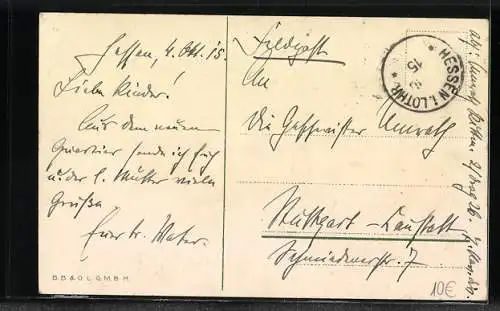 Hessen, 4. Okt. 15.
Liebe Kinder!
Aus dem neuen
Quartier sende ich Euch
u. der l. Mutter viele
Grüße
Euer tr. Vater.
B.B.&O.L.G.M.B.H.
Feldpost
An
die Geschwister Umrath
Stuttgart-Cannstatt
Schmidenerstr. 7
HESSEN i. LOTHR.
15
Abs. Umrath
10€